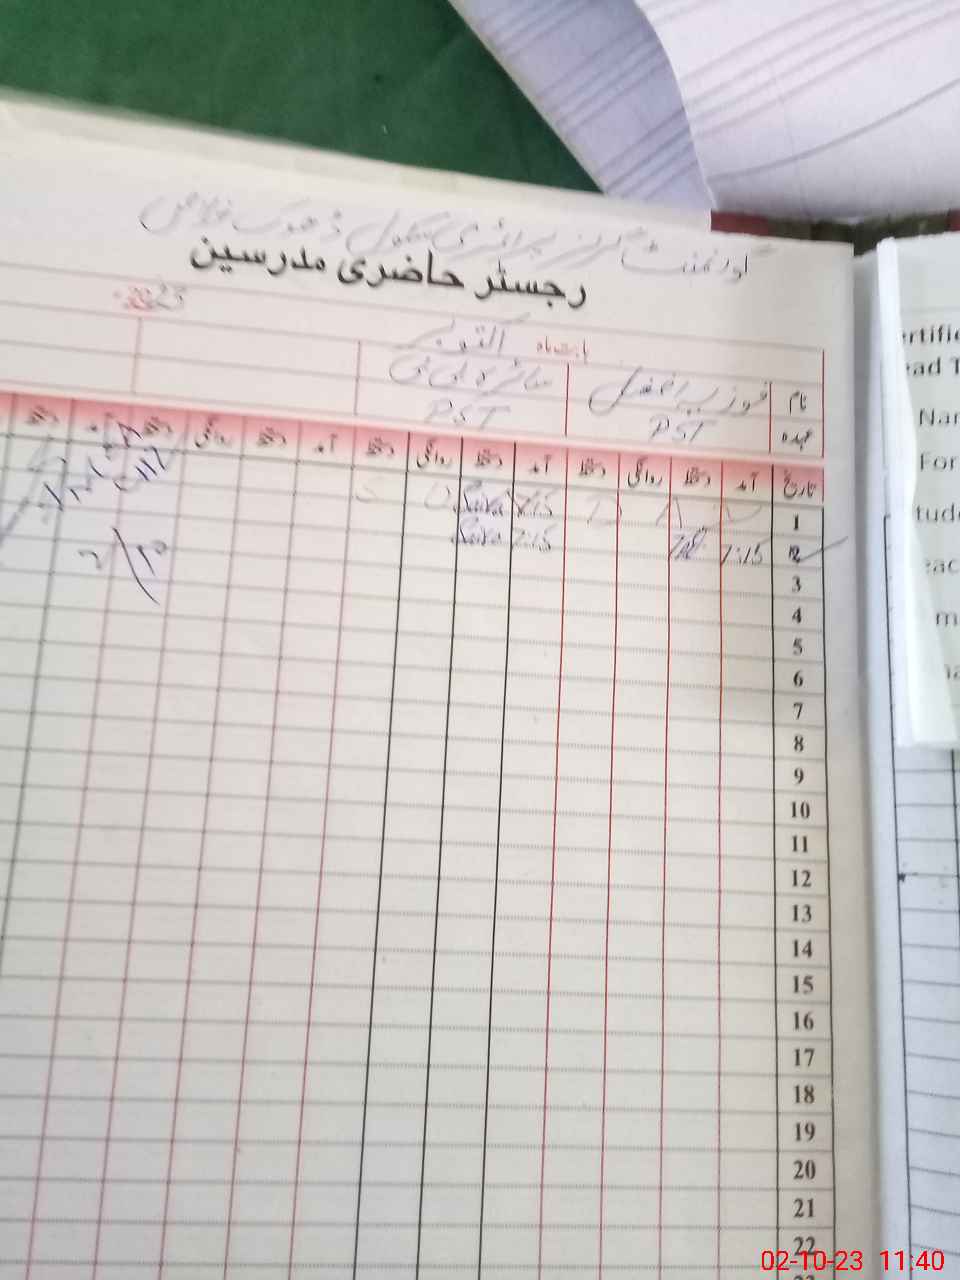 گورنمنٹ گرلز پرائمری سکول ڈھوک
رجسٹر حاضری مدرسین
2023
بابت ماہ اکتوبر
نام فوزیہ افضل سائرہ بی بی
عہدہ PST PST
تاریخ آمد دستخط روانگی دستخط آمد دستخط روانگی دستخط آمد دستخط روانگی دستخط آمد دستخط
1 7:15 Saira
2 7:15 7:15 Saira
3
4
5
6
7
8
9
10
11
12
13
14
15
16
17
18
19
20
21
22
23
ertific
ead T
Nam
For
tude
m
02-10-23 11:40